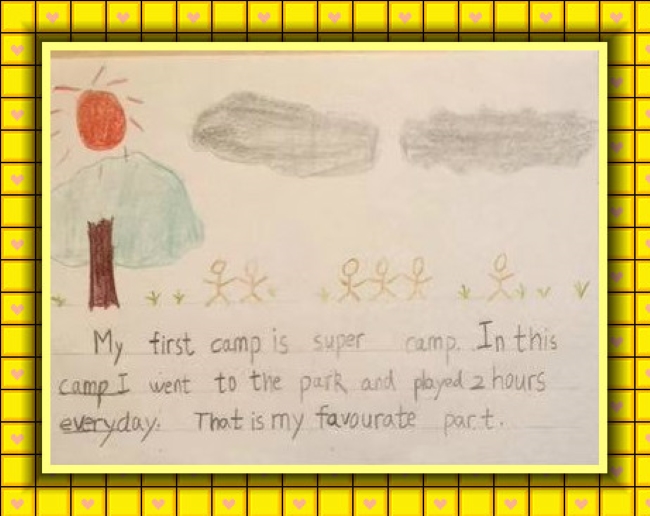 My first camp is super camp. In this
camp I went to the park and played 2 hours
everyday. That is my favourate part.